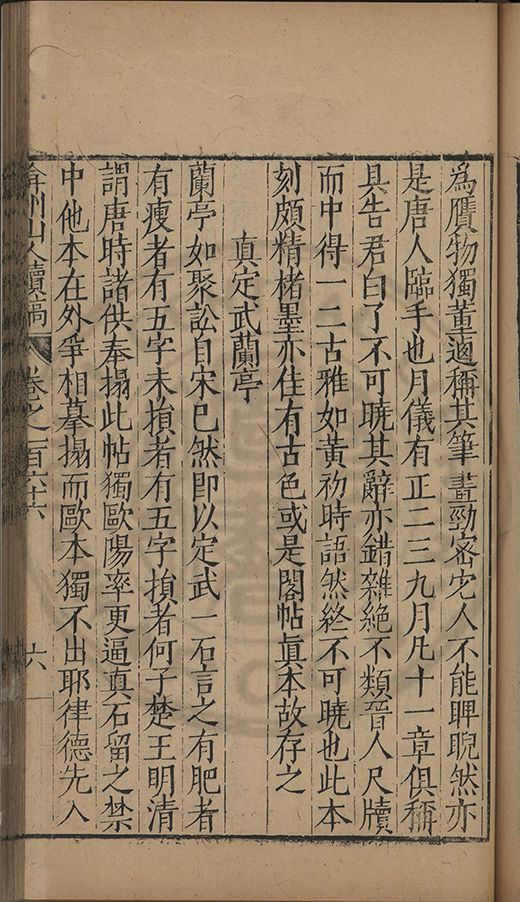 為贋物獨董逌稱其筆畫勁密它人不能睥睨然亦
是唐人臨手也月儀有正二三九月凡十一章俱稱
具告君白了不可曉其辭亦錯雜絕不類晉人尺牘
而中得一二古雅如黃初時語然終不可曉也此本
刻頗精楮墨亦佳有古色或是閣帖眞本故存之
真定武蘭亭
蘭亭如聚訟自宋已然即以定武一石言之有肥者
有瘦者有五字未損者有五字損者何子楚王明清
謂唐時諸供奉搨此帖獨歐陽率更逼真石留之禁
中他本在外爭相摹搨而歐本獨不出耶律德先入
弇州山人續稿 卷之一百六十六 六